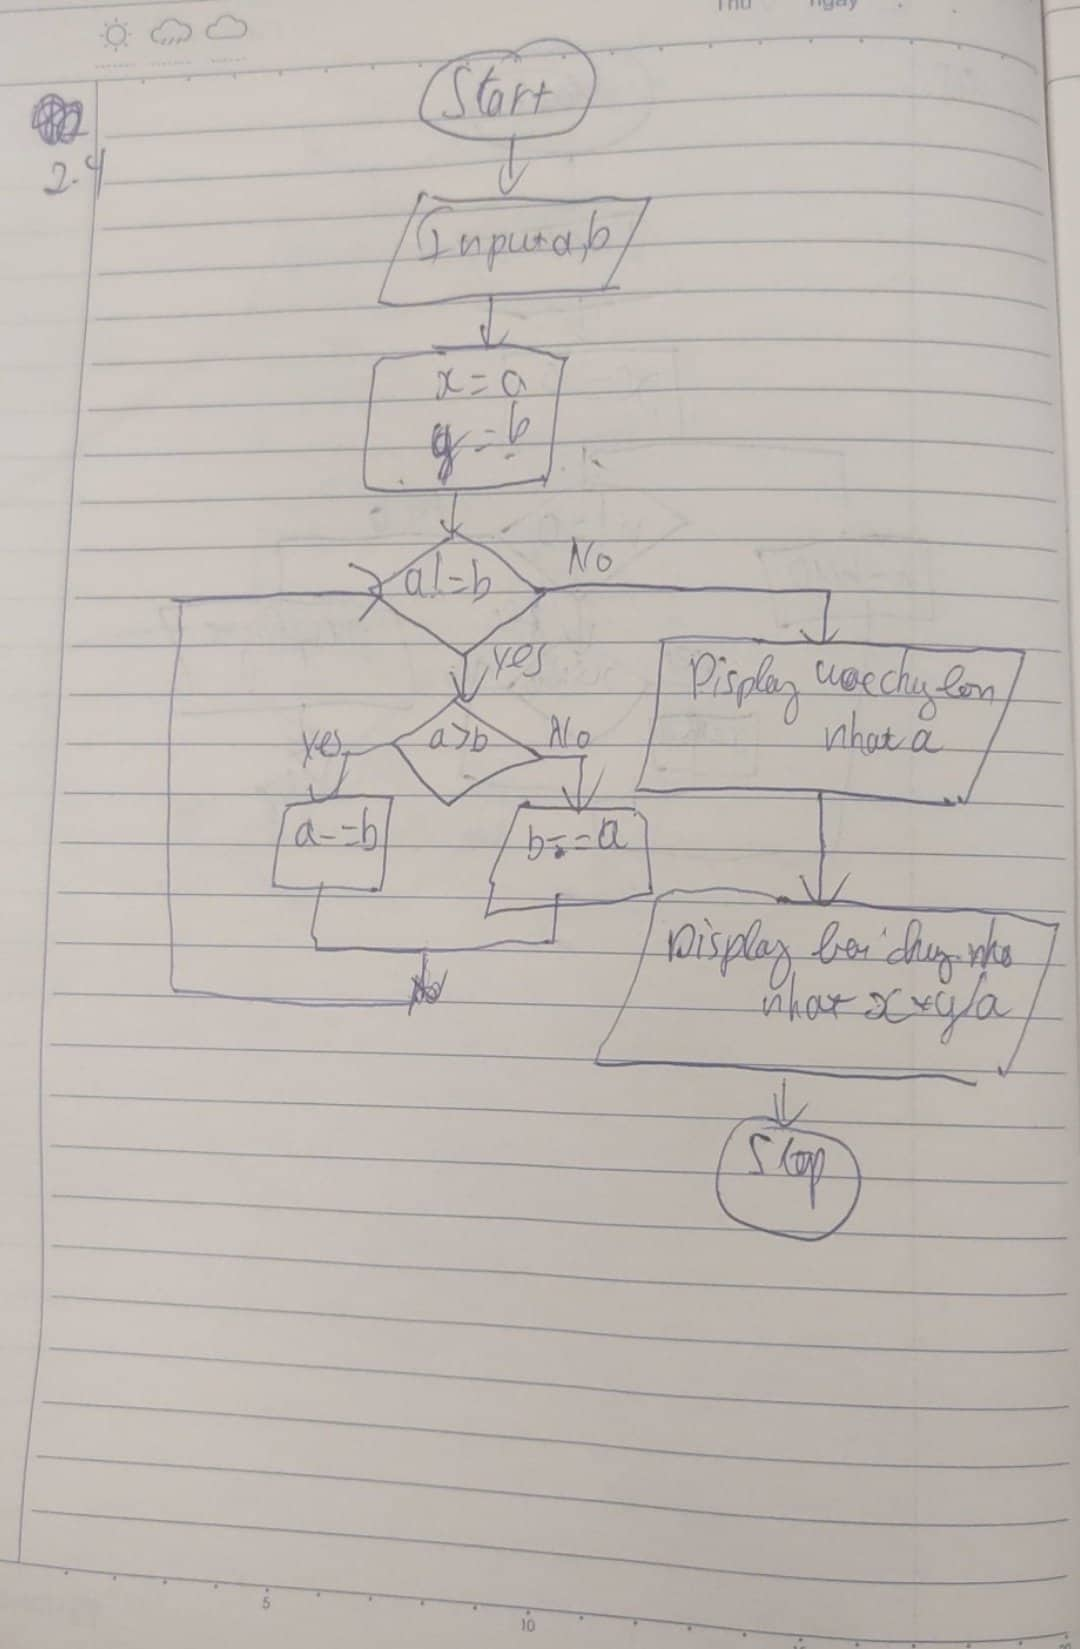 Thu ngày
2.4
Start
Input a,b
x = a
y = b
a!=b
No
yes
Display uoc chug lon
nhat a
a>b
yes
No
a-=b
b-=a
Display boi chug nho
nhat x*y/a
Stop
5
10